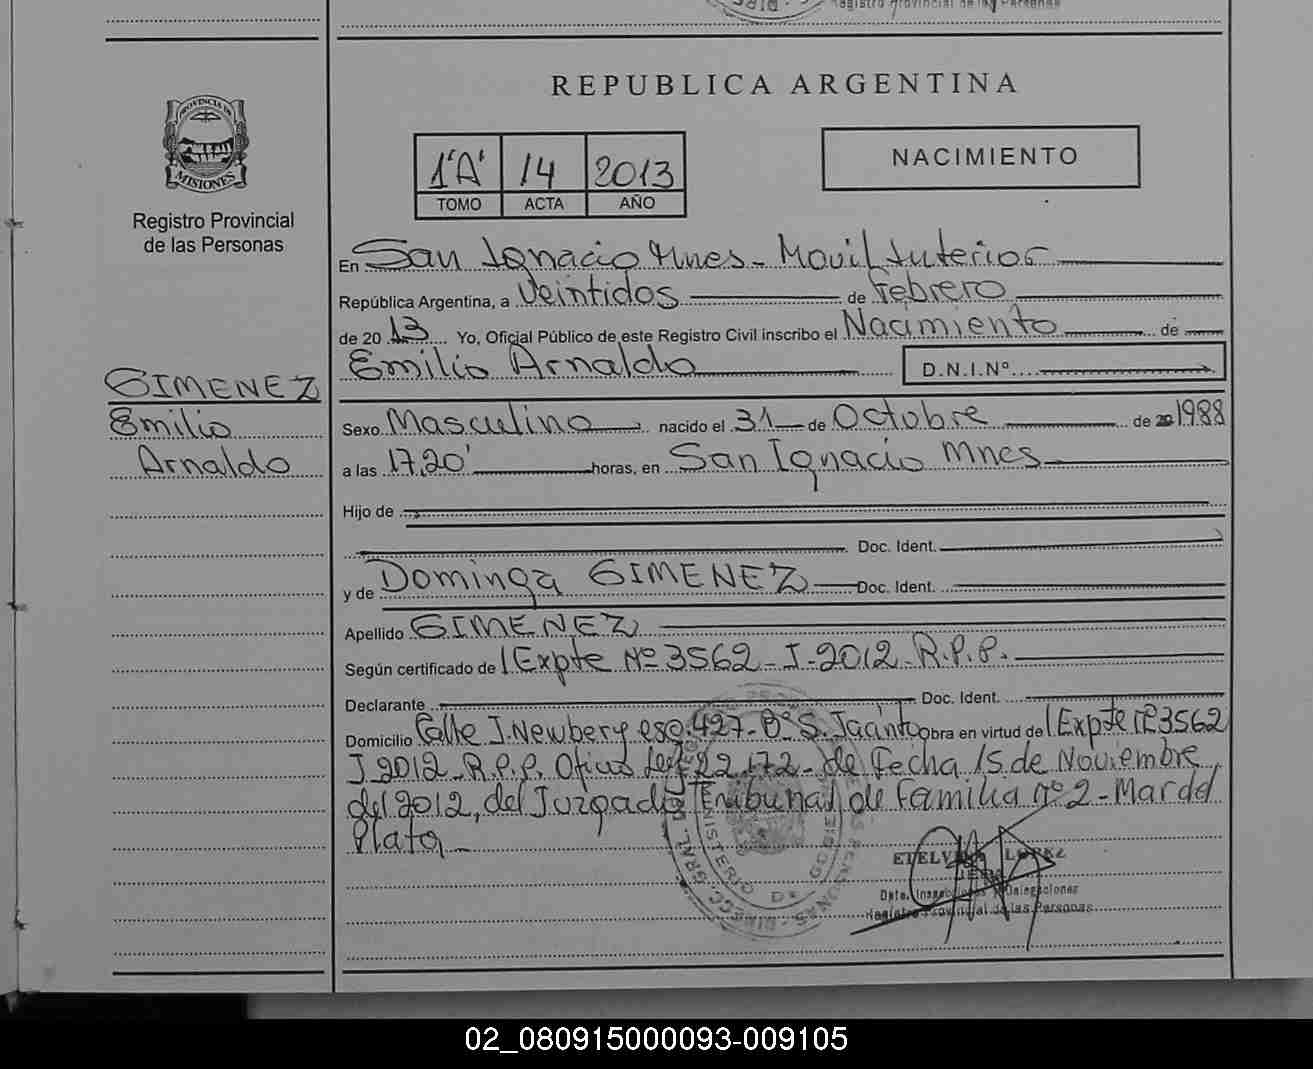 Registro Provincial de las Personas
REPUBLICA ARGENTINA
PROVINCIA DE
MISIONES
Registro Provincial
de las Personas
1'A' 14 2013
TOMO ACTA AÑO
NACIMIENTO
En San Ignacio Mnes - Movil Interior
República Argentina, a Veintidos de Febrero
de 2013 Yo, Oficial Público de este Registro Civil inscribo el Nacimiento de
Emilio Arnaldo D.N.I.Nº
GIMENEZ
Emilio
Arnaldo
Sexo Masculino nacido el 31 de Octubre de 1988
a las 17,20' horas, en San Ignacio Mnes
Hijo de
Doc. Ident.
y de Dominga GIMENEZ Doc. Ident.
Apellido GIMENEZ
Según certificado de Expte Nº 3562 - I - 2012 - R.P.P.
Declarante Doc. Ident.
Domicilio Calle J. Newbery esq. 427 - Bº S. Jacinto Obra en virtud de Expte Nº 3562
I 2012 - R.P.P. Oficio Ley 22.172 - de Fecha 15 de Noviembre
del 2012, del Juzgado Tribunal de Familia nº 2 - Mar del
Plata -
ETELVINA LOPEZ
JEFA
Dpto. Inspecciones y Delegaciones
Registro Provincial de las Personas
02_080915000093-009105